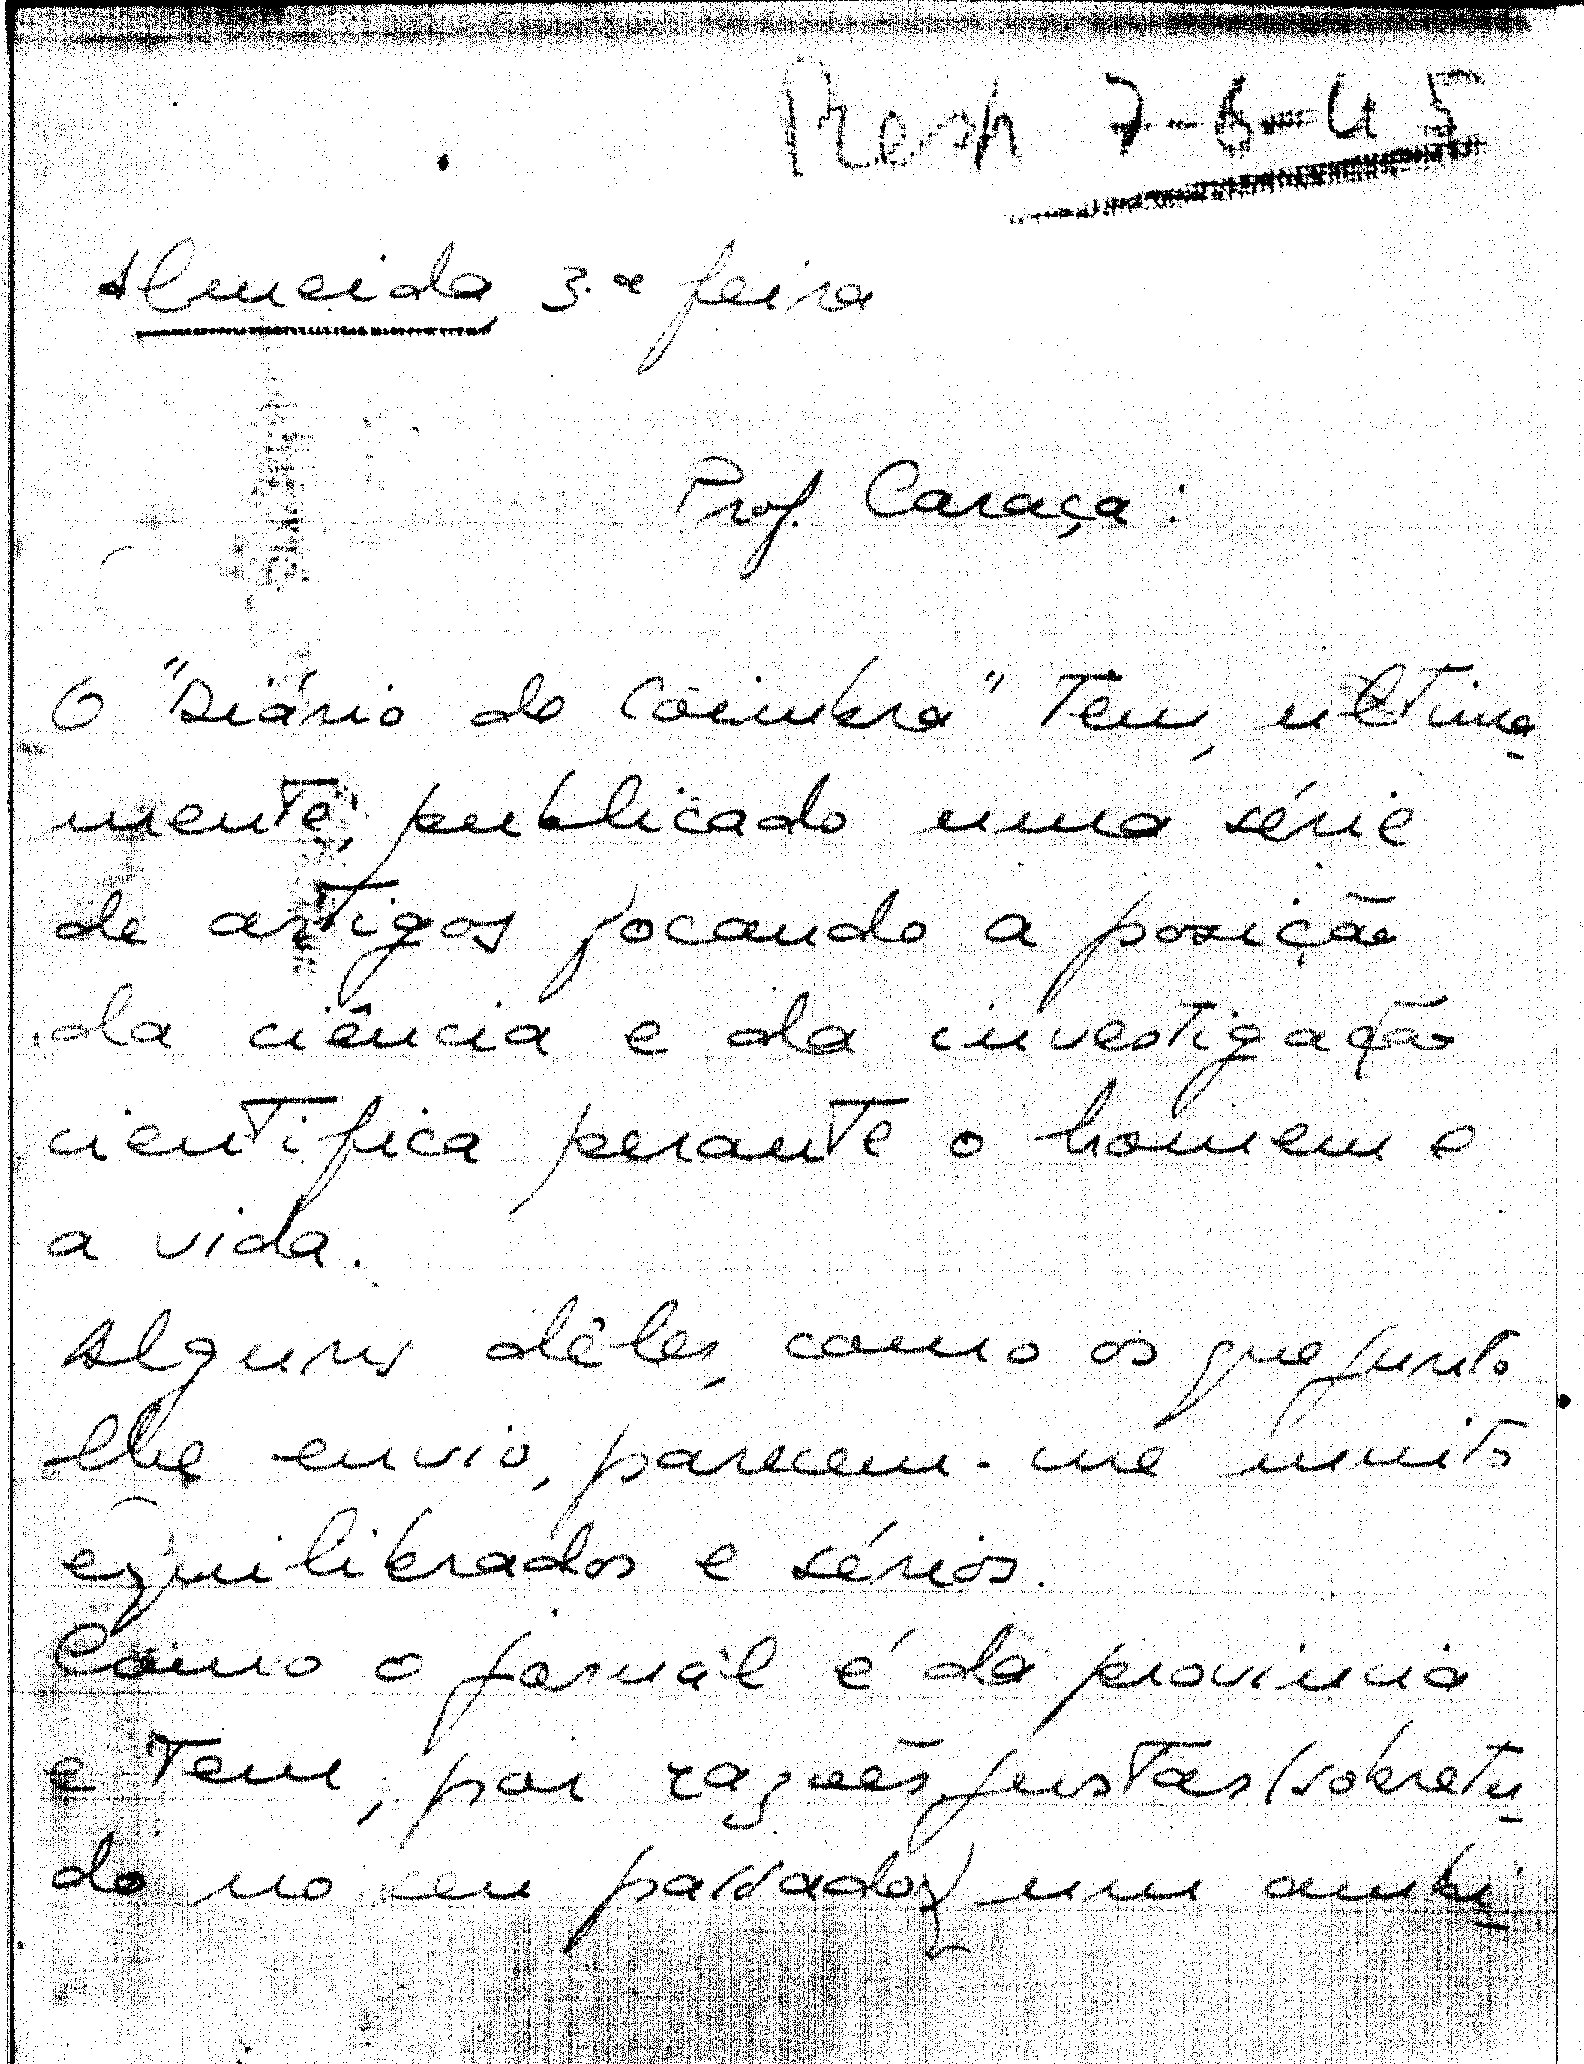 Resp 7-6-45
Almeida, 3.ª feira
Prof. Caraça:
O "Diário de Coimbra" tem, ultima-
mente, publicado uma série
de artigos focando a posição
da ciência e da investigação
cientifica perante o homem e
a vida.
Alguns dêles, como os que junto
lhe envio, parecem-me muito
equilibrados e sérios.
Como o jornal é da provincia
e tem, por razões justas (sobretu-
do no seu passado) um ambi-